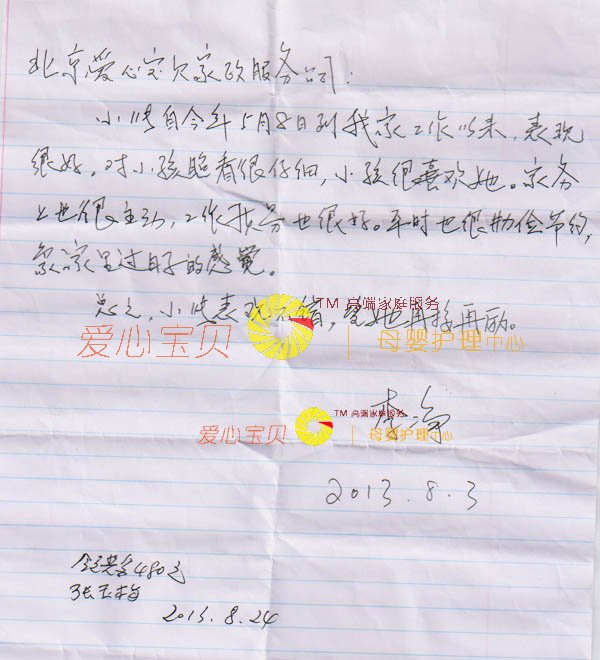 北京爱心宝贝家政服务公司:
小张自今年5月8日到我家工作以来,表现
很好。对小孩照看很仔细,小孩很喜欢她。家务
上也很主动,工作服务也很好。平时也很勤俭节约,
象家里过日子的感觉。
总之,小张表现不错,望她再接再励。
爱心宝贝 TM 高端家庭服务 母婴护理中心
爱心宝贝 TM 高端家庭服务 母婴护理中心
李净
2013.8.3
480元
张玉梅
2013.8.24